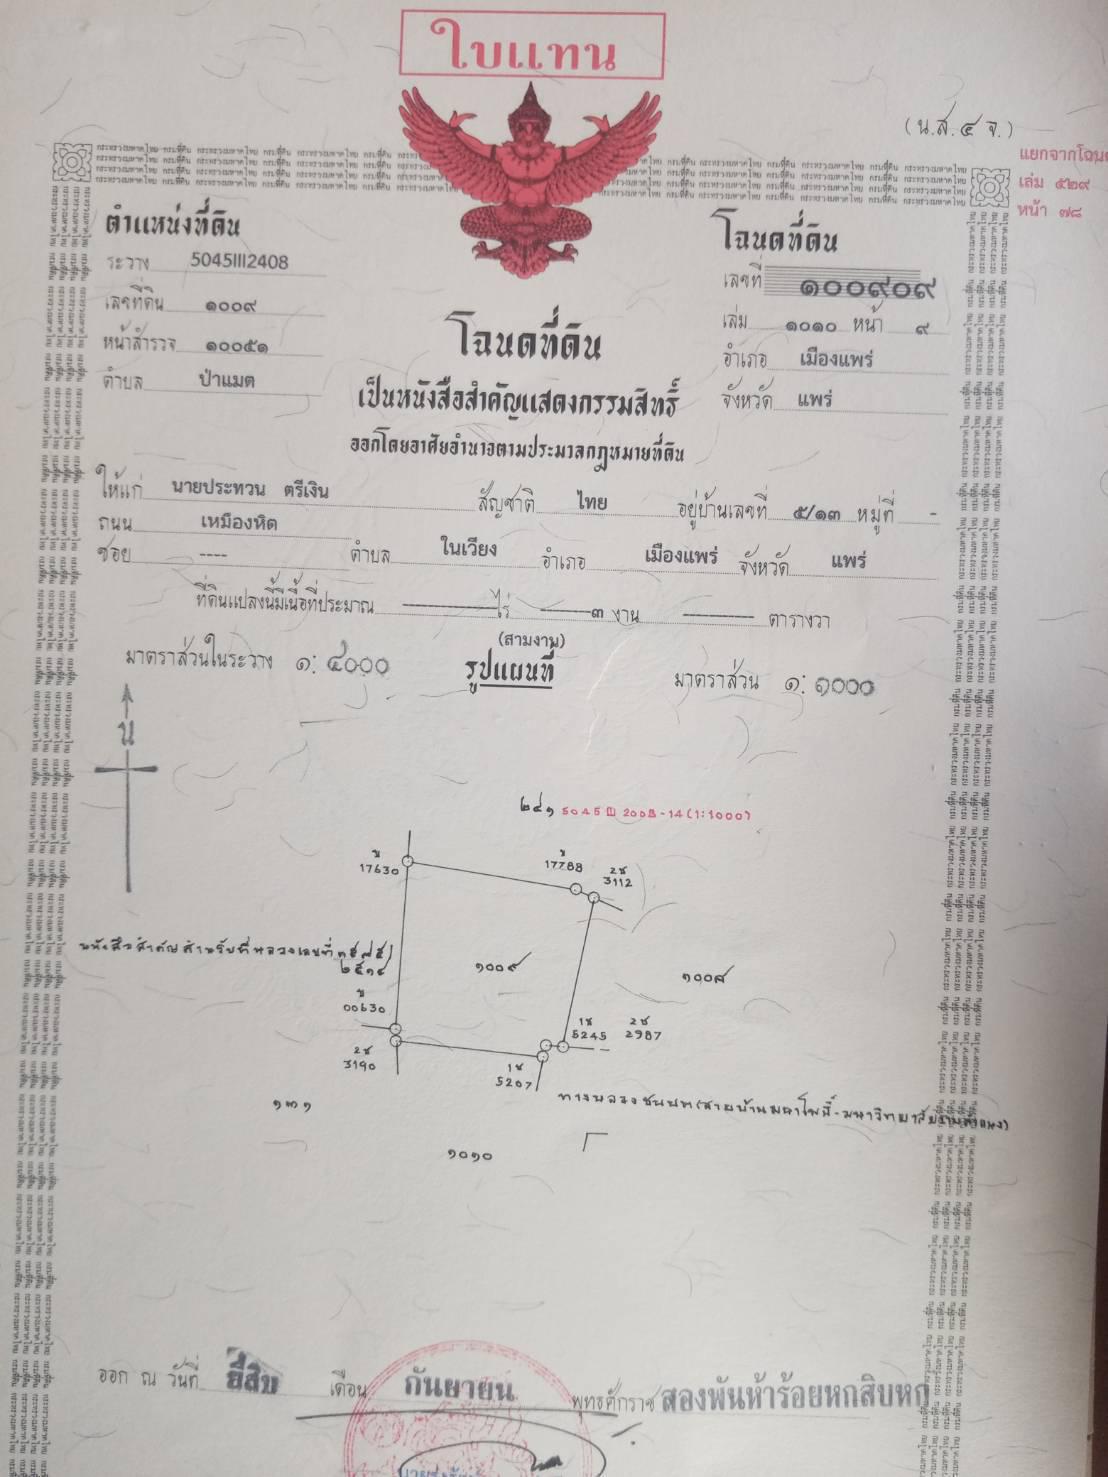 ใบแทน
(น.ส.๔ จ.)
แยกจากโฉนด
เล่ม ๕๒๙
หน้า ๗๘
ตำแหน่งที่ดิน
ระวาง 5045III2408
เลขที่ดิน ๑๐๐๙
หน้าสำรวจ ๑๐๐๕๑
ตำบล ป่าแมต
โฉนดที่ดิน
เลขที่ ๑๐๐๙๐๙
เล่ม ๑๐๑๐ หน้า ๙
อำเภอ เมืองแพร่
จังหวัด แพร่
โฉนดที่ดิน
เป็นหนังสือสำคัญแสดงกรรมสิทธิ์
ออกโดยอาศัยอำนาจตามประมวลกฎหมายที่ดิน
ให้แก่ นายประทวน ตรีเงิน สัญชาติ ไทย อยู่บ้านเลขที่ ๕/๑๓ หมู่ที่ -
ถนน เหมืองหิต
ซอย ---- ตำบล ในเวียง อำเภอ เมืองแพร่ จังหวัด แพร่
ที่ดินแปลงนี้มีเนื้อที่ประมาณ ไร่ ๓ งาน ตารางวา
(สามงาน)
มาตราส่วนในระวาง ๑:๔๐๐๐ รูปแผนที่ มาตราส่วน ๑:๑๐๐๐
น
๒๔๑ 5045 III 2008-14 (1:1000)
17630
17788
2ช
3112
หนังสือสำคัญสำหรับที่หลวงเลขที่
๑๐๐๙
๑๐๐๘
00630
1ช 2ช
5245 2987
2ช
3190
1ช
5207
๑๓๑
ทางหลวงชนบท(สายบ้านมหาโพธิ์-มหาวิทยาลัยรามคำแหง)
๑๐๑๐
ออก ณ วันที่ ยี่สิบ เดือน กันยายน พุทธศักราช สองพันห้าร้อยหกสิบหก